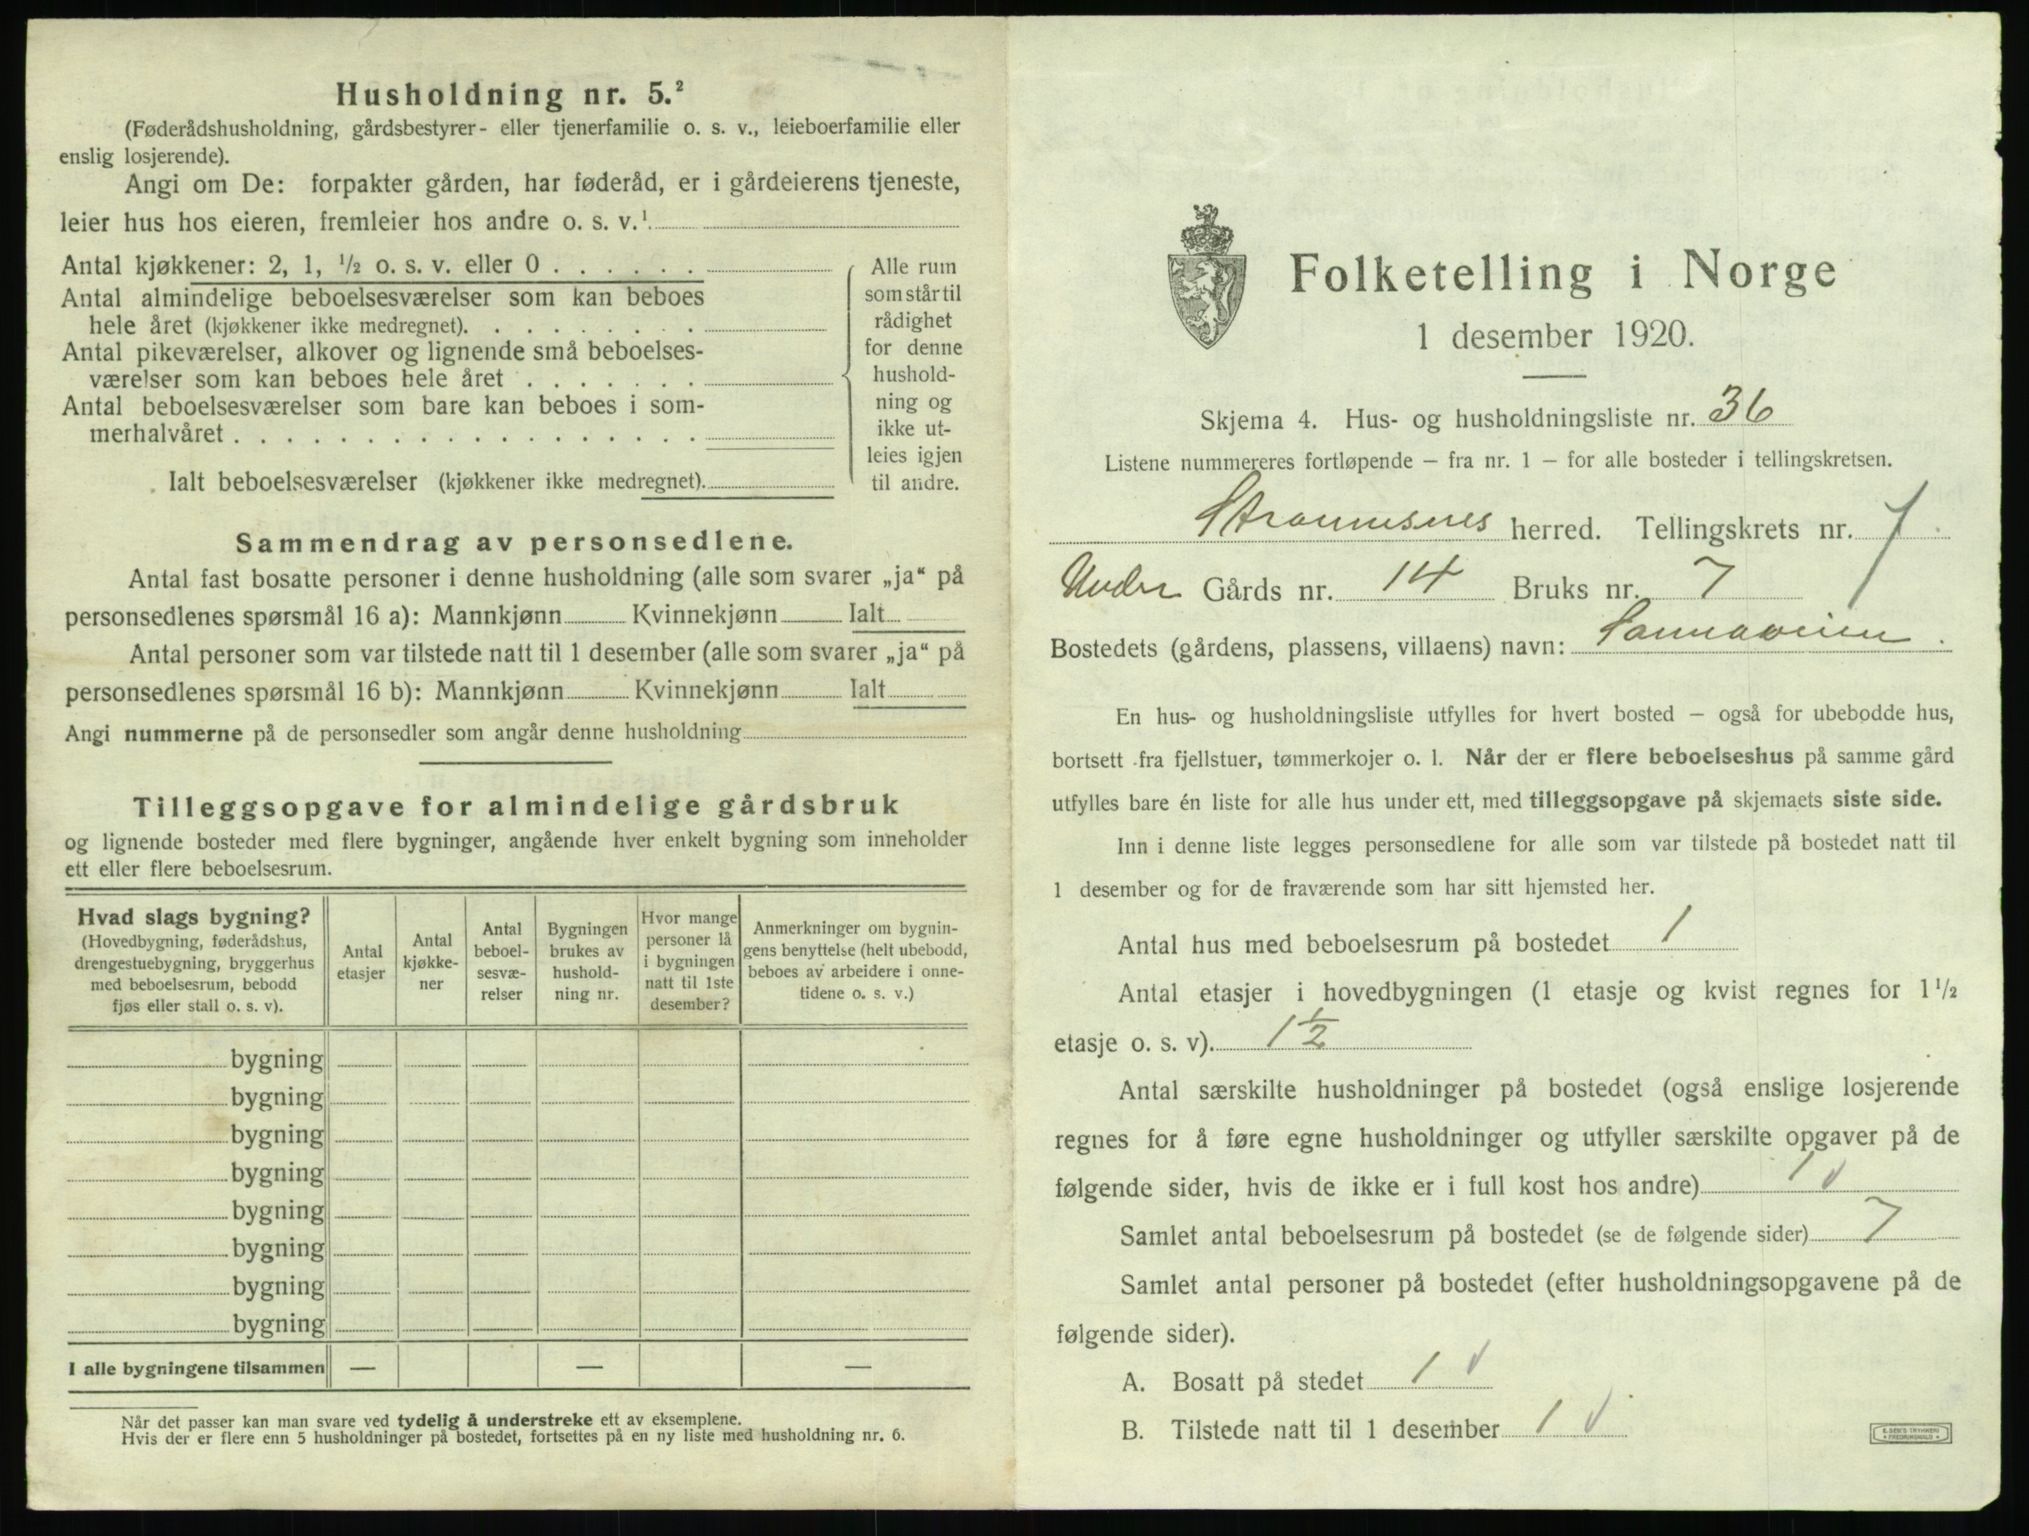 Husholdning nr. 5.²
(Føderådshusholdning, gårdsbestyrer- eller tjenerfamilie o. s. v., leieboerfamilie eller
enslig losjerende).
Angi om De: forpakter gården, har føderåd, er i gårdeierens tjeneste,
leier hus hos eieren, fremleier hos andre o. s. v.¹
Antal kjøkkener: 2, 1, ½ o. s. v. eller 0 . . . . . .
Antal almindelige beboelsesværelser som kan beboes
hele året (kjøkkener ikke medregnet). . . . . . . . .
Antal pikeværelser, alkover og lignende små beboelses-
værelser som kan beboes hele året . . . . . . .
Antal beboelsesværelser som bare kan beboes i som-
merhalvåret . . . . . . . . . . . . . . . . . .
Ialt beboelsesværelser (kjøkkener ikke medregnet).
Alle rum
som står til
rådighet
for denne
hushold-
ning og
ikke ut-
leies igjen
til andre.
Sammendrag av personsedlene.
Antal fast bosatte personer i denne husholdning (alle som svarer „ja“ på
personsedlenes spørsmål 16 a): Mannkjønn Kvinnekjønn Ialt
Antal personer som var tilstede natt til 1 desember (alle som svarer „ja“ på
personsedlenes spørsmål 16 b): Mannkjønn Kvinnekjønn Ialt
Angi nummerne på de personsedler som angår denne husholdning
Tilleggsopgave for almindelige gårdsbruk
og lignende bosteder med flere bygninger, angående hver enkelt bygning som inneholder
ett eller flere beboelsesrum.
Hvad slags bygning?
(Hovedbygning, føderådshus,
drengestuebygning, bryggerhus
med beboelsesrum, bebodd
fjøs eller stall o. s. v).
Antal
etasjer
Antal
kjøkke-
ner
Antal
beboel-
sesvæ-
relser
Bygningen
brukes av
hushold-
ning nr.
Hvor mange
personer lå
i bygningen
natt til 1ste
desember?
Anmerkninger om bygnin-
gens benyttelse (helt ubebodd,
beboes av arbeidere i onne-
tidene o. s. v.)
bygning
bygning
bygning
bygning
bygning
bygning
bygning
bygning
I alle bygningene tilsammen — — —
Når det passer kan man svare ved tydelig å understreke ett av eksemplene.
Hvis der er flere enn 5 husholdninger på bostedet, fortsettes på en ny liste med husholdning nr. 6.
Folketelling i Norge
1 desember 1920.
Skjema 4. Hus- og husholdningsliste nr. 36
Listene nummereres fortløpende – fra nr. 1 – for alle bosteder i tellingskretsen.
herred. Tellingskrets nr. 7
Under Gårds nr. 14 Bruks nr. 7
Bostedets (gårdens, plassens, villaens) navn:
En hus- og husholdningsliste utfylles for hvert bosted – også for ubebodde hus,
bortsett fra fjellstuer, tømmerkojer o. l. Når der er flere beboelseshus på samme gård
utfylles bare én liste for alle hus under ett, med tilleggsopgave på skjemaets siste side.
Inn i denne liste legges personsedlene for alle som var tilstede på bostedet natt til
1 desember og for de fraværende som har sitt hjemsted her.
Antal hus med beboelsesrum på bostedet 1
Antal etasjer i hovedbygningen (1 etasje og kvist regnes for 1½
etasje o. s. v). 1½
Antal særskilte husholdninger på bostedet (også enslige losjerende
regnes for å føre egne husholdninger og utfyller særskilte opgaver på de
følgende sider, hvis de ikke er i full kost hos andre) 1
Samlet antal beboelsesrum på bostedet (se de følgende sider) 7
Samlet antal personer på bostedet (efter husholdningsopgavene på de
følgende sider).
A. Bosatt på stedet 1
B. Tilstede natt til 1 desember 1